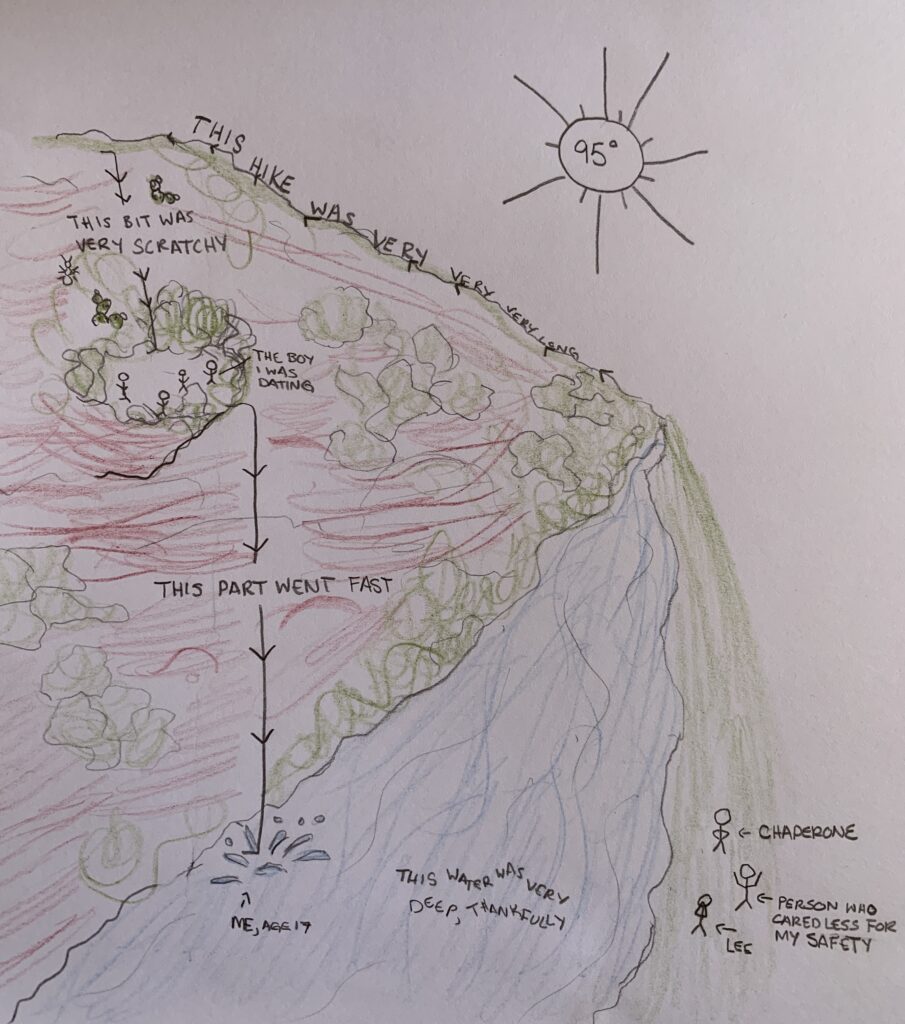 THIS HIKE WAS VERY VERY VERY LONG
95°
THIS BIT WAS
VERY SCRATCHY
THE BOY
I WAS
DATING
THIS PART WENT FAST
CHAPERONE
THIS WATER WAS VERY
DEEP, THANKFULLY
PERSON WHO
CARED LESS FOR
MY SAFETY
ME, AGE 17
LEE